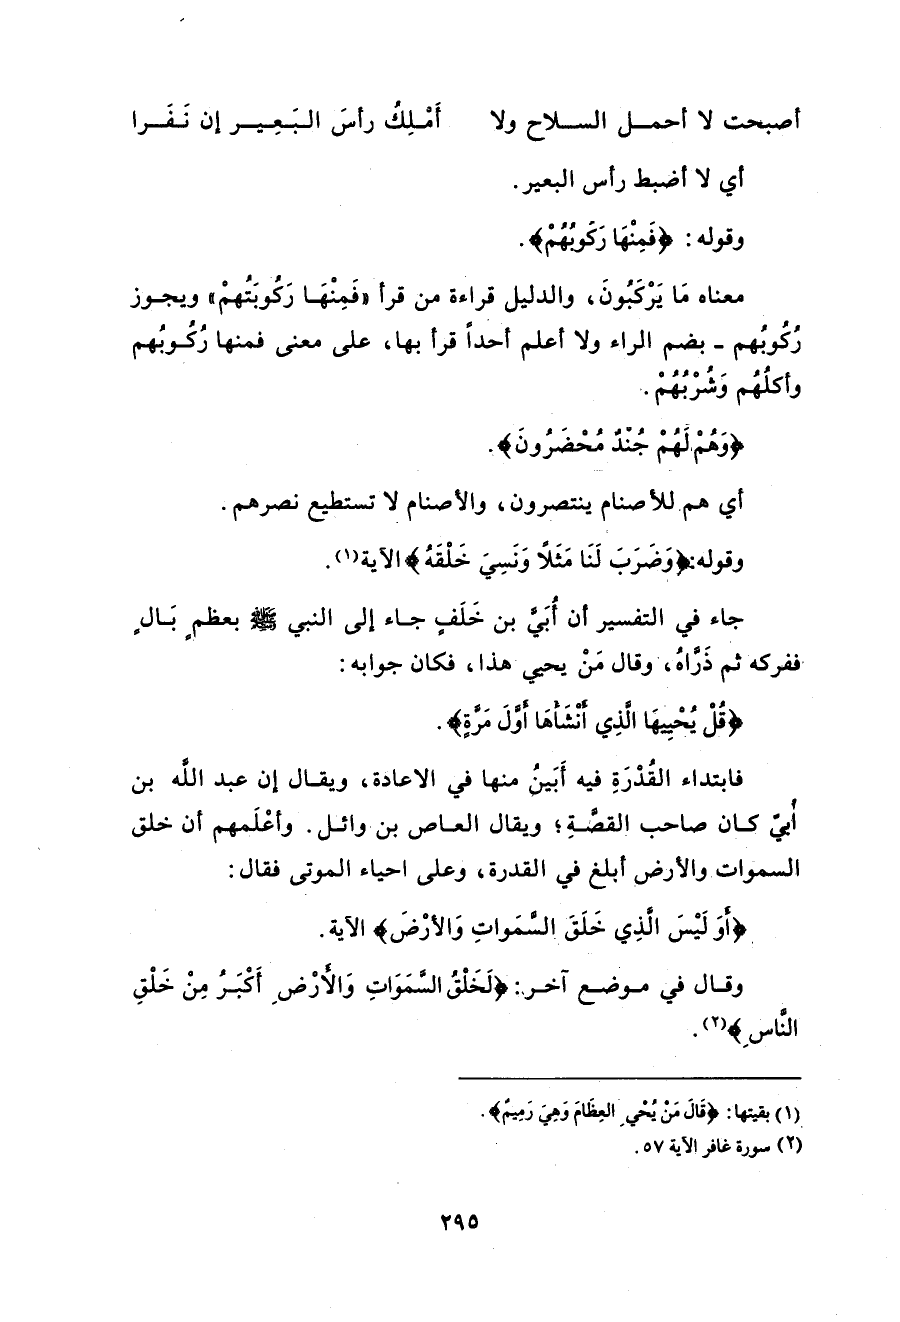 أصبحت لا أحمـــل الســـلاح ولا    أَمْـلِكُ رأسَ الـبَـعِـيـــر إن نَـفَـرا
أي لا أضبط رأس البعير.
وقوله: ﴿فَمِنْهَا رَكُوبُهُمْ﴾.
معناه مَا يَرْكَبُونَ، والدليل قراءة من قرأ «فَمِنْهَـا رَكُوبَتُهمْ» ويجـوز
رُكُوبُهم - بضم الراء ولا أعلم أحداً قرأ بها، على معنى فمنها رُكُـوبُهم
وأكلُهُم وَشُرْبُهُمْ.
﴿وَهُمْ لَهُمْ جُنْدٌ مُحْضَرُونَ﴾.
أي هم للأصنام ينتصرون، والأصنام لا تستطيع نصرهم.
وقوله: ﴿وَضَرَبَ لَنَا مَثَلاً وَنَسِيَ خَلْقَهُ﴾ الآية(١).
جاء في التفسير أن أُبَيَّ بن خَلَفٍ جـاء إلى النبي ﷺ بعظمٍ بَـالٍ
ففركه ثم ذَرَّاهُ، وقال مَنْ يحيي هذا، فكان جوابه:
﴿قُلْ يُحْيِيهَا الَّذِي أَنْشَأَهَا أَوَّلَ مَرَّةٍ﴾.
فابتداء القُدْرَةِ فيه أَبَينُ منها في الاعادة، ويقـال إن عبد اللَّه بن
أُبيّ كـان صاحب القصَّـةِ؛ ويقال العـاص بن وائـل. وأعْلَمهم أن خلق
السموات والأرض أبلغ في القدرة، وعلى احياء الموتى فقال:
﴿أَوَ لَيْسَ الَّذِي خَلَقَ السَّمَواتِ وَالأرْضَ﴾ الآية.
وقـال في مـوضـع آخـر: ﴿لَخَلْقُ السَّمَوَاتِ وَالأَرْضِ أَكْبَـرُ مِنْ خَلْقِ
النَّاسِ﴾(٢).
(١) بقيتها: ﴿قَالَ مَنْ يُحْيِ العِظَامَ وَهِيَ رَمِيمٌ﴾.
(٢) سورة غافر الآية ٥٧.
٢٩٥